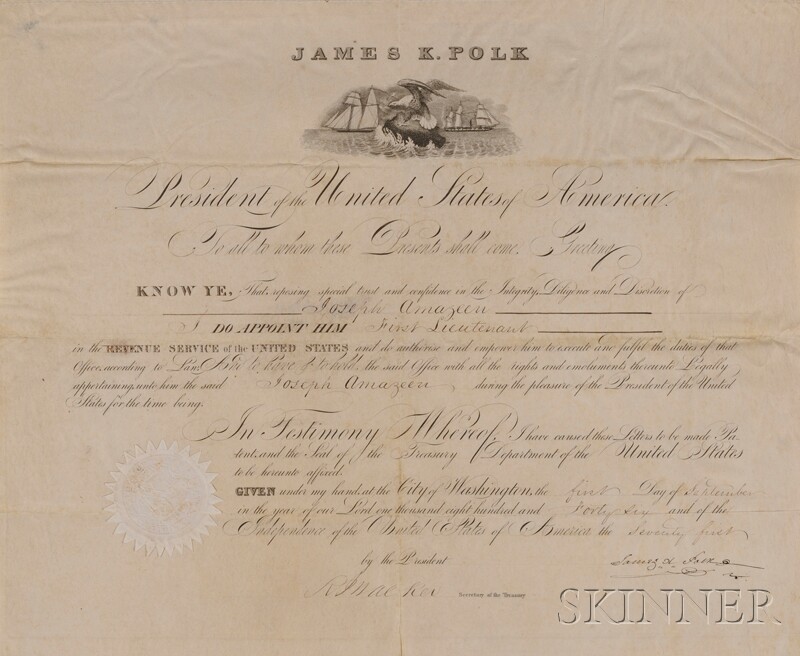 JAMES K. POLK
President of the United States of America.
To all to whom these Presents shall come. Greeting
KNOW YE, That, reposing special trust and confidence in the Integrity, Diligence and Discretion of
Joseph Amazeen
I DO APPOINT HIM First Lieutenant
in the REVENUE SERVICE of the UNITED STATES and do authorise and empower him to execute and fulfil the duties of that
Office, according to Law, And to have & to hold the said Office with all the rights and emoluments thereunto Legally
appertaining, unto him the said Joseph Amazeen, during the pleasure of the President of the United
States for the time being.
In Testimony Whereof, I have caused these Letters to be made Pa-
tent, and the Seal of the Treasury Department of the United States
to be hereunto affixed.
GIVEN under my hand, at the City of Washington, the first Day of September
in the year of our Lord one thousand eight hundred and Forty Six and of the
Independence of the United States of America the Seventy first
by the President
James K. Polk
R J Walker Secretary of the Treasury
SKINNER